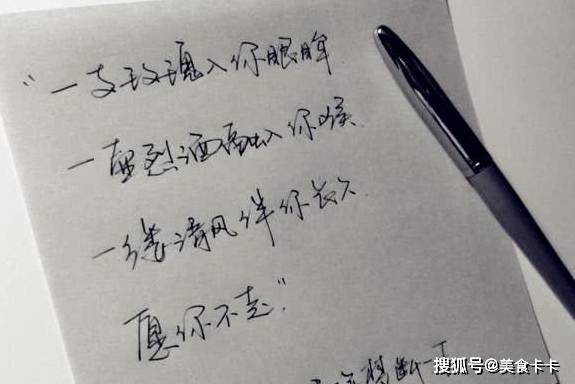 “一支玫瑰入你眼眸
一壶烈酒入你喉
一缕清风伴你长久
愿你不走”
搜狐号@美食卡卡